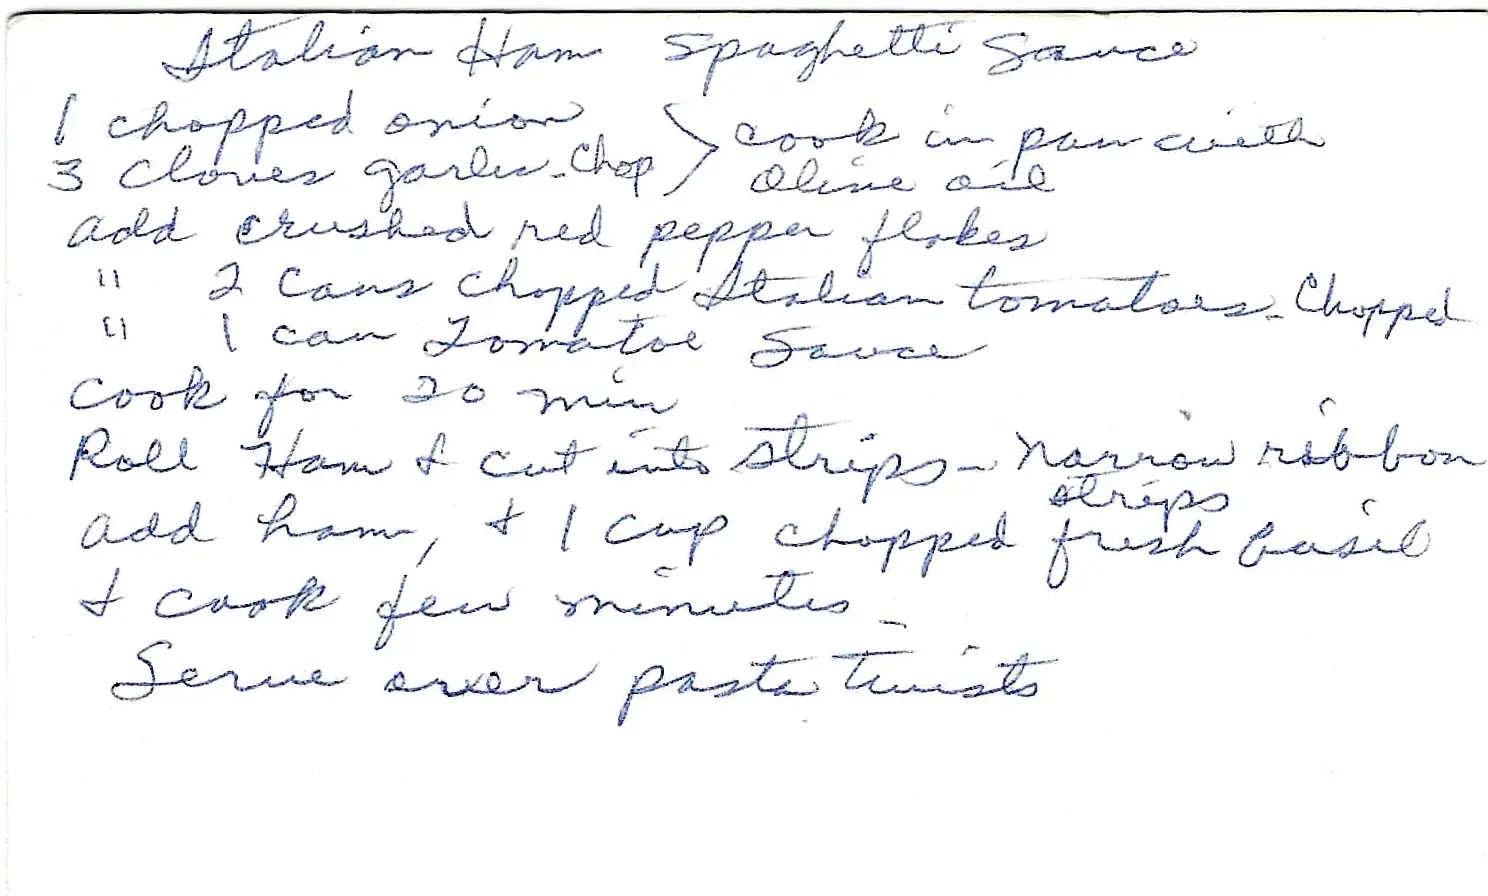 Italian Ham Spaghetti Sauce
1 chopped onion
3 cloves garlic - Chop } cook in pan with
olive oil
add crushed red pepper flakes
" 2 cans chopped Italian tomatoes - Chopped
" 1 can Tomatoe Sauce
cook for 20 min
Roll Ham & cut into strips - narrow ribbon
strips
add ham, & 1 cup chopped fresh basil
& cook few minutes
Serve over pasta twists